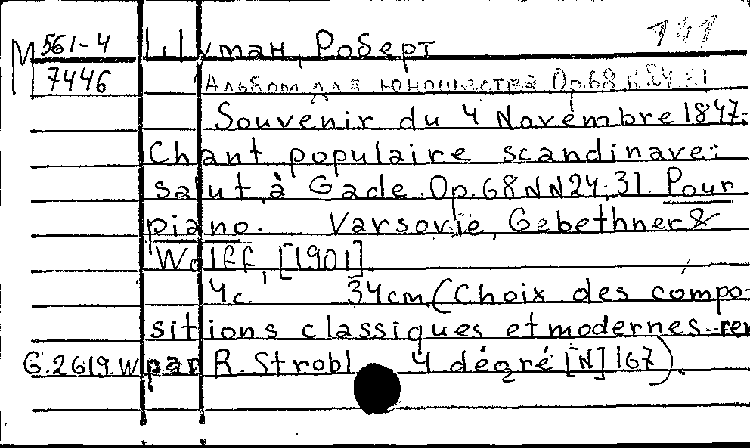 М 561-4 Шуман, Роберт 141
7446 Альбом для юношества Op.68 №24.31
Souvenir du 4 Novembre 1847.
Chant populaire scandinave;
salut à Gade. Op.68 NN24;31. Pour
piano. Varsovie, Gebethner &
Wolff, [1901].
4c. 34cm. (Choix des compo-
sitions classiques et modernes rev
G.2619.W par R. Strobl 4 dégré [N] 167).